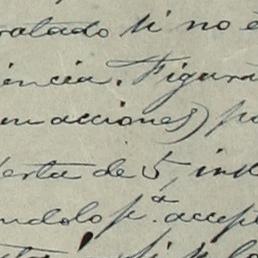 ratado si no é
iencia. Figura
en acciones) po
erta de 5, ins
endolo p.ª acep